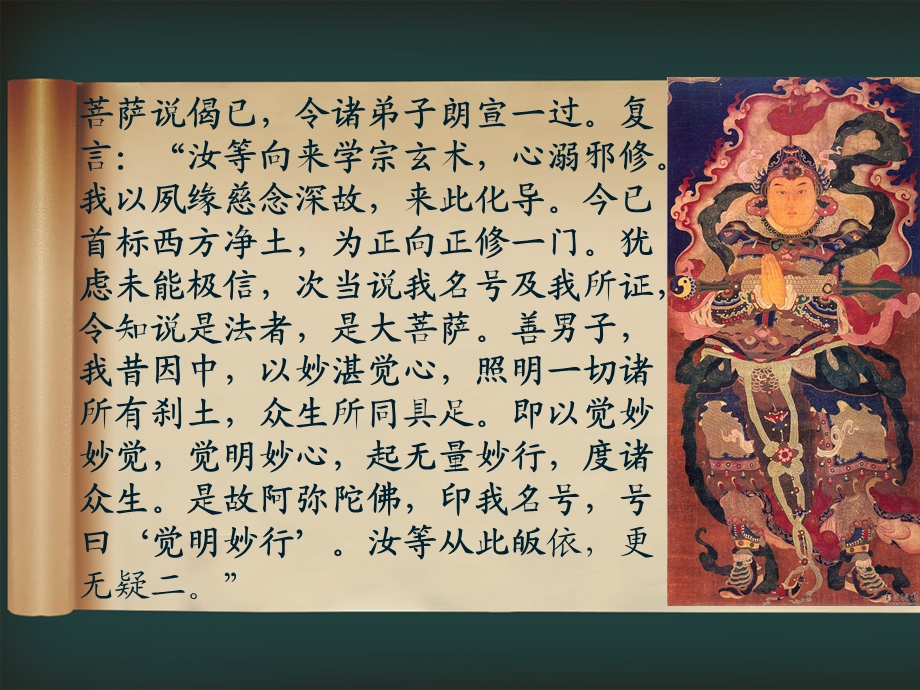 菩萨说偈已，令诸弟子朗宣一过。复
言：“汝等向来学宗玄术，心溺邪修。
我以夙缘慈念深故，来此化导。今已
首标西方净土，为正向正修一门。犹
虑未能极信，次当说我名号及我所证，
令知说是法者，是大菩萨。善男子，
我昔因中，以妙湛觉心，照明一切诸
所有刹土，众生所同具足。即以觉妙
妙觉，觉明妙心，起无量妙行，度诸
众生。是故阿弥陀佛，印我名号，号
曰‘觉明妙行’。汝等从此皈依，更
无疑二。”